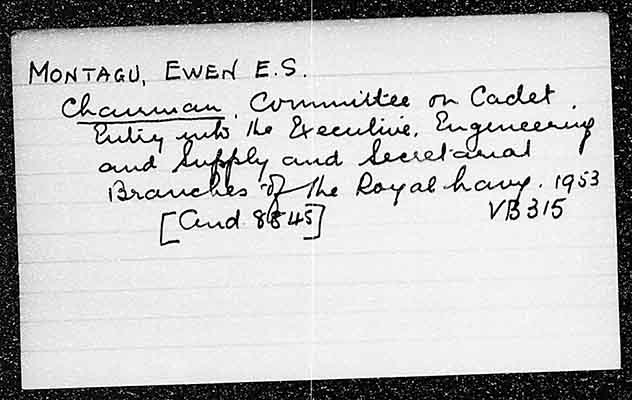 MONTAGU, EWEN E.S.
Chairman, Committee on Cadet
Entry into the Executive, Engineering
and Supply and Secretariat
Branches of the Royal Navy. 1953
[Cmd 8845] VB315